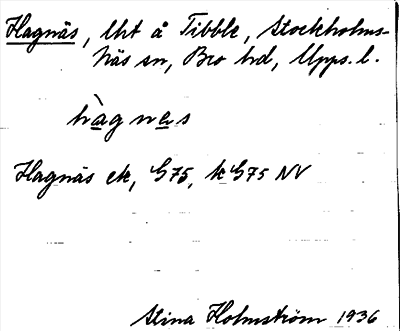 Hagnäs, lht å Tibble, Stockholms-
Näs sn, Bro hd, Upps. l.
hàgnes
Hagnäs ek, G75, k G75 NV
Stina Holmström 1936